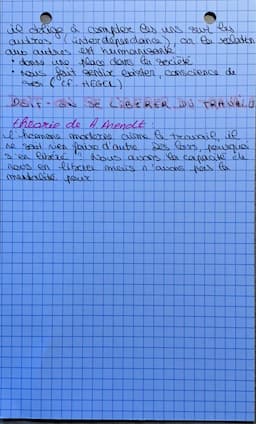 il oblige à compter les uns sur les
autres (interdépendance), or la relation
aux autres est humanisante
• donne une place dans la société
• nous fait sentir exister, conscience de
soi (cf. HEGEL)
DOIT-ON SE LIBÉRER DU TRAVAIL
théorie de H. Arendt
l'homme moderne aime le travail, il
ne sait rien faire d'autre. Dès lors, pourquoi
s'en libérer? Nous avons la capacité de
nous en libérer mais n'avons pas la
mentalité pour